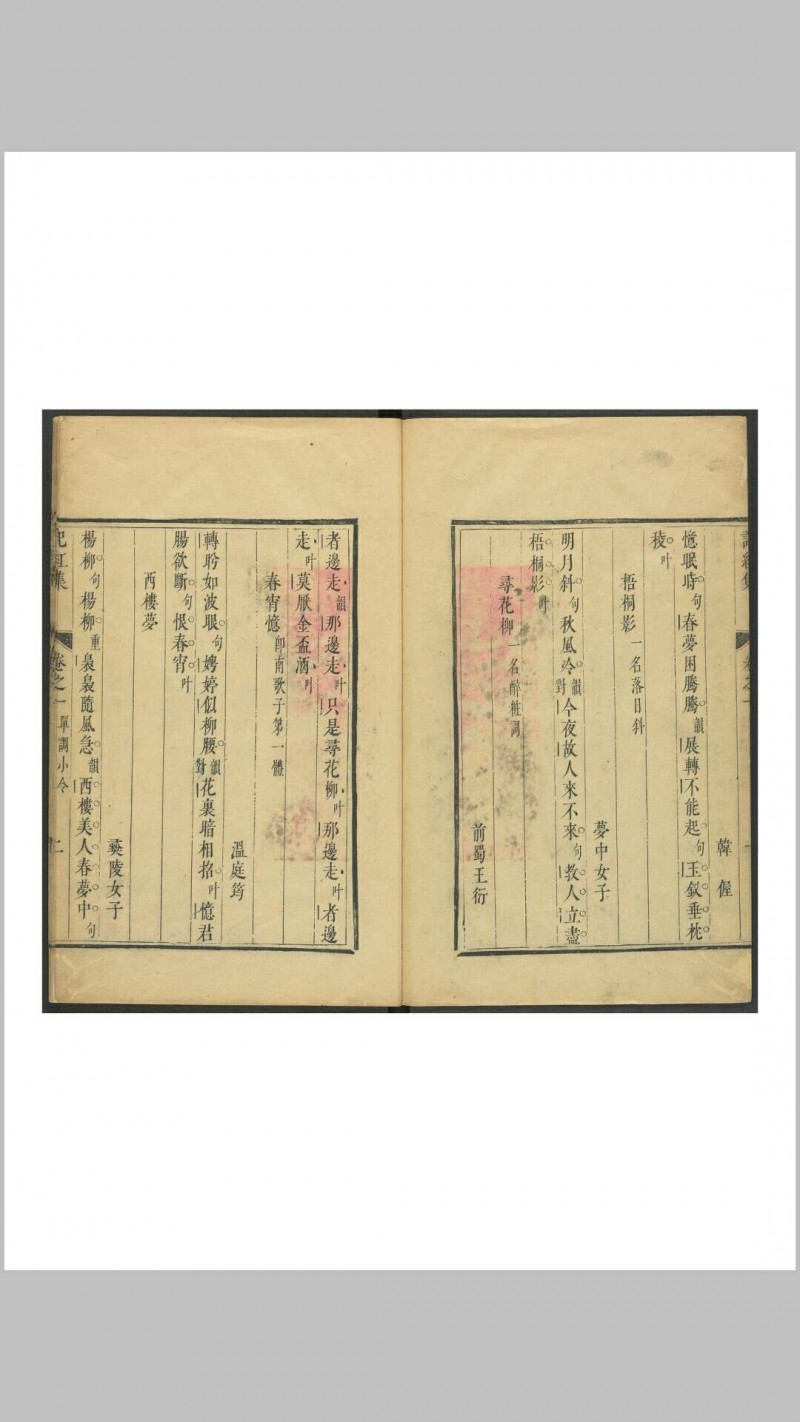 韓偓
憶眠時句春夢困騰騰韻展轉不能起句玉釵垂枕
稜叶
梧桐影一名落日斜
夢中女子
明月斜句秋風冷韻對今夜故人來不來句教人立盡
梧桐影叶
尋花柳一名醉粧詞
前蜀王衍
者邊走韻那邊走叶只是尋花柳叶那邊走叶者邊
走叶莫厭金盃酒叶
春宵憶即南歌子第一體
溫庭筠
轉盻如波眼句娉婷似柳腰韻對花裏暗相招叶憶君
腸欲斷句恨春宵叶
西樓夢
夷陵女子
楊柳句楊柳重裊裊隨風急韻西樓美人春夢中句
記紅集 卷之一 單調小令 二